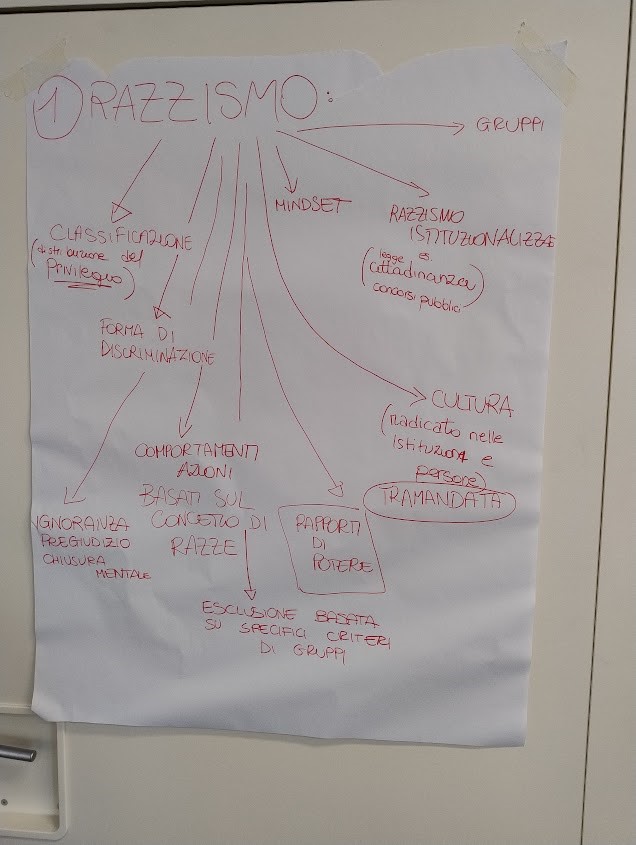 1 RAZZISMO:
GRUPPI
MINDSET
RAZZISMO
ISTITUZIONALIZZA
(legge es.
cittadinanza
concorsi pubblici)
CLASSIFICAZIONE
(distribuzione del
Privilegio)
FORMA DI
DISCRIMINAZIONE
CULTURA
(radicato nelle
istituzioni e
persone)
TRAMANDATA
COMPORTAMENTI
AZIONI
BASATI SUL
CONCETTO DI
RAZZE
RAPPORTI
DI
POTERE
IGNORANZA
PREGIUDIZIO
CHIUSURA
MENTALE
ESCLUSIONE BASATA
SU SPECIFICI CRITERI
DI GRUPPI